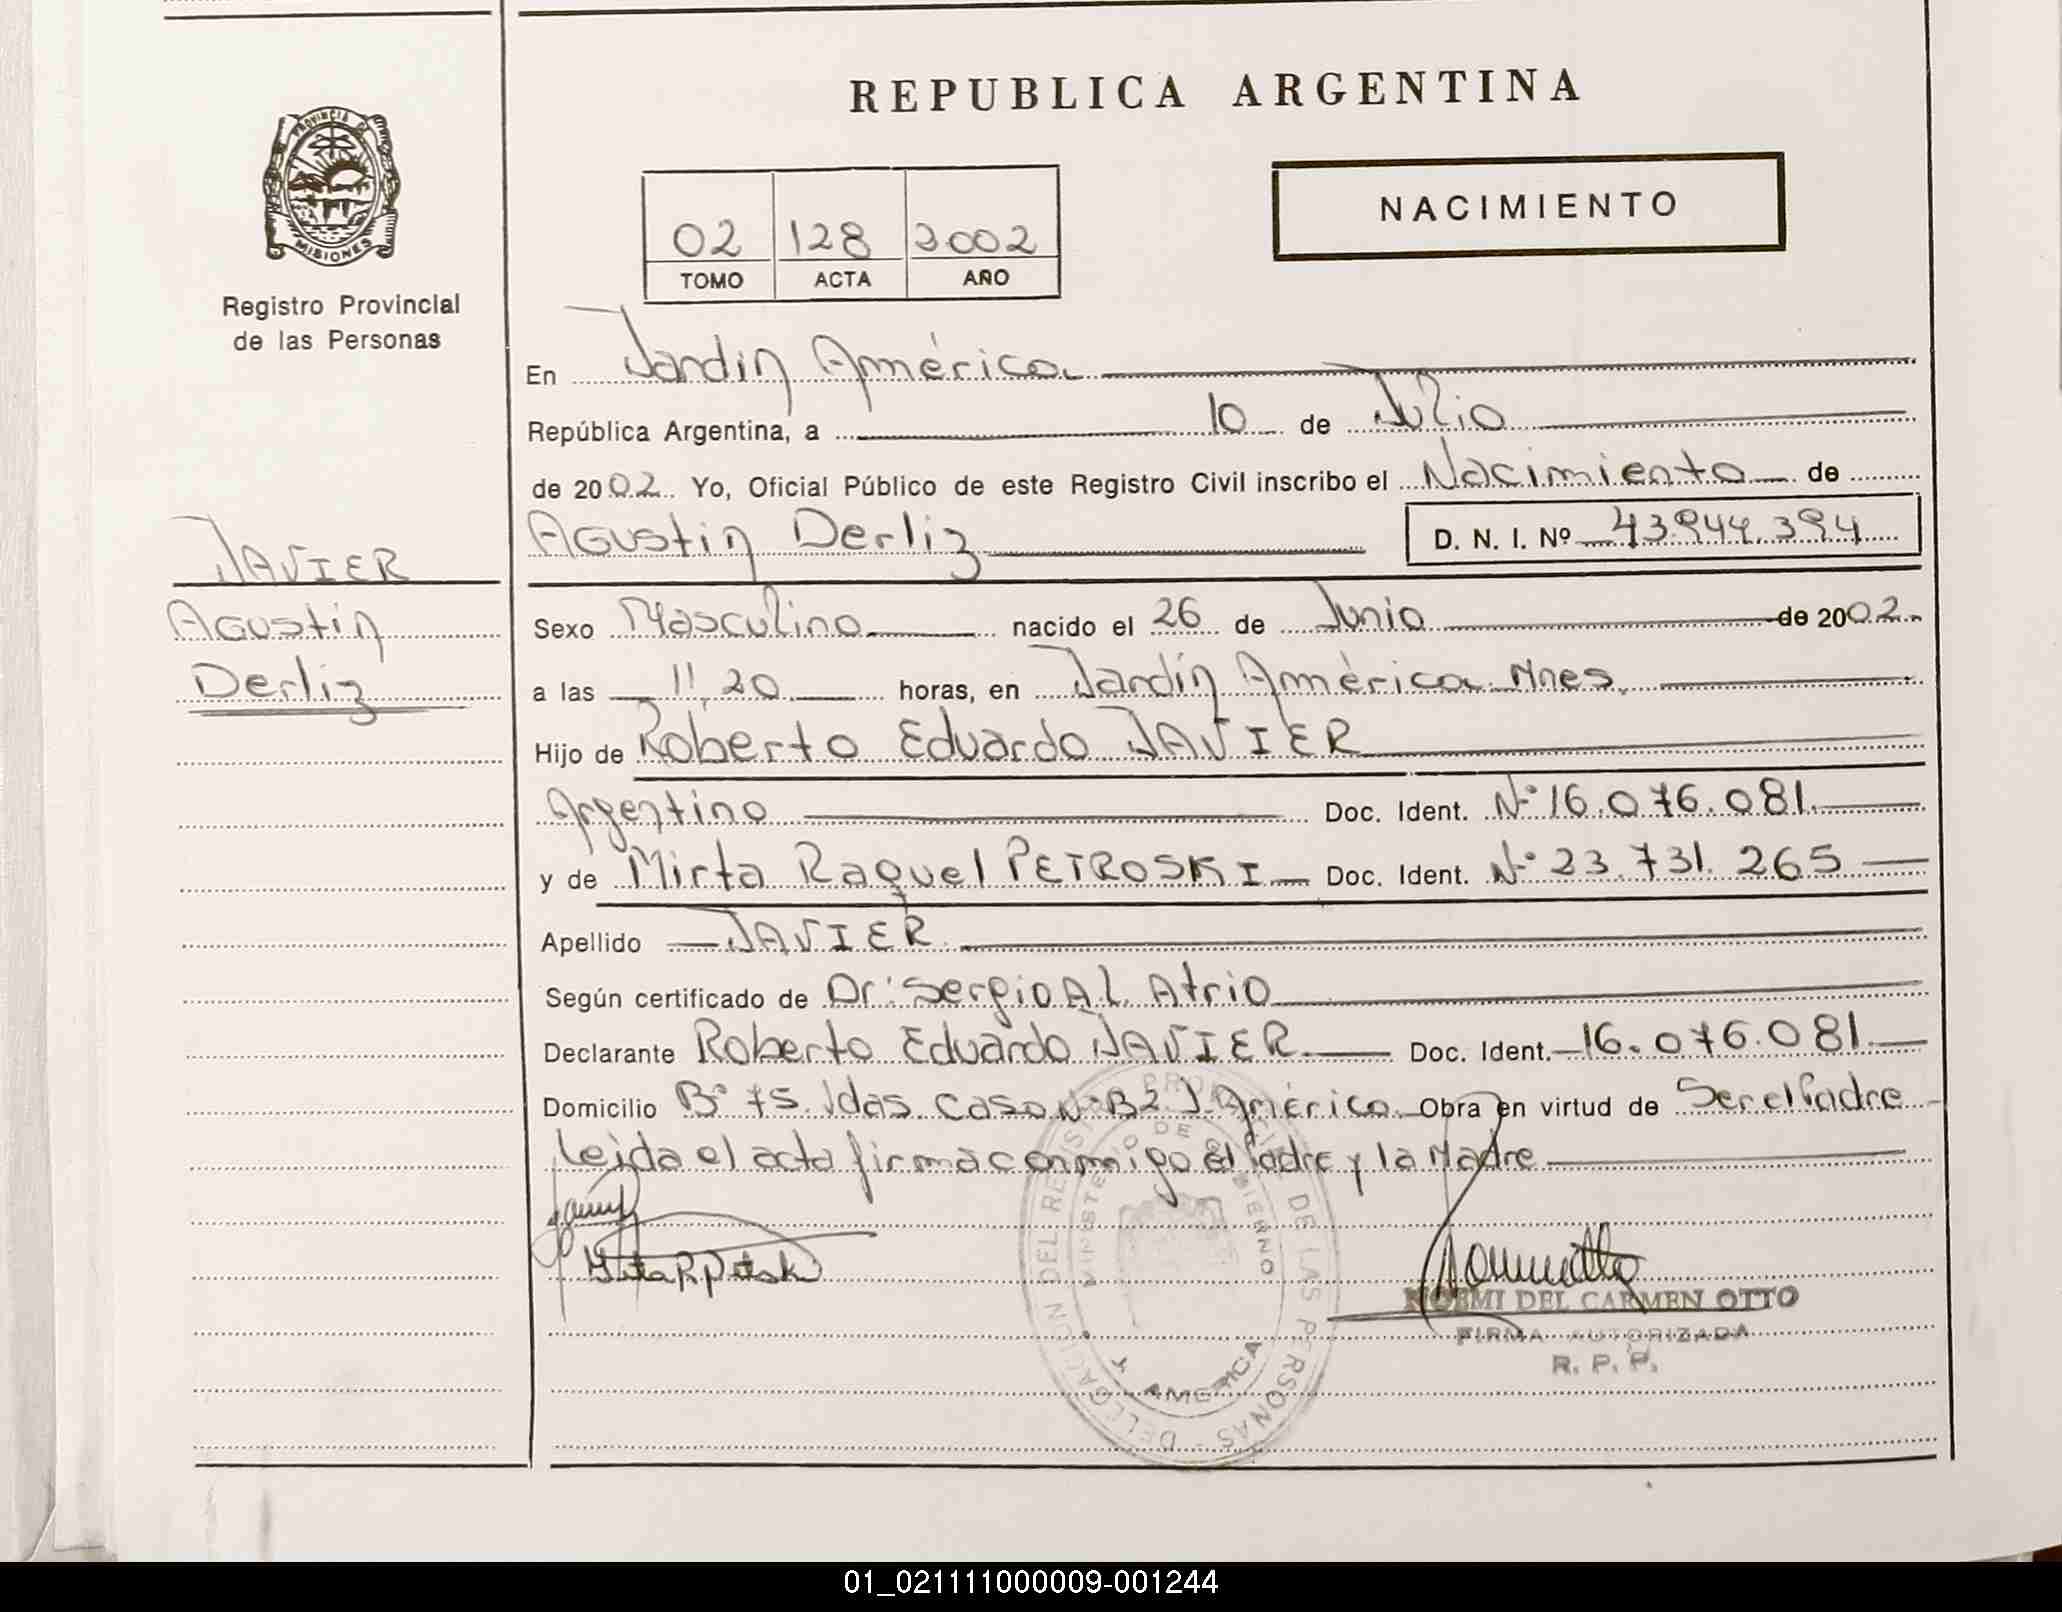 REPUBLICA ARGENTINA
PROVINCIA DE
MISIONES
Registro Provincial
de las Personas
02 128 2002
TOMO ACTA AÑO
NACIMIENTO
En Jardín América
República Argentina, a 10 de Julio
de 2002. Yo, Oficial Público de este Registro Civil inscribo el Nacimiento de
Agustín Derliz D. N. I. Nº 43.944.394
JAVIER
Agustín
Derliz
Sexo Masculino nacido el 26 de Junio de 2002.
a las 11,20 horas, en Jardín América Mnes.
Hijo de Roberto Eduardo JAVIER
Argentino Doc. Ident. Nº 16.076.081.
y de Mirta Raquel PETROSKI Doc. Ident. Nº 23.731.265
Apellido JAVIER
Según certificado de Dr. Sergio A.L. Atrio
Declarante Roberto Eduardo JAVIER Doc. Ident. 16.076.081
Domicilio Bº 75 Vdas. Casa Nº B2 J. América Obra en virtud de Ser el Padre
Leída el acta firma conmigo el Padre y la Madre
DELEGACION DEL REGISTRO PROVINCIAL DE LAS PERSONAS
MINISTERIO DE GOBIERNO
AMERICA
NOEMI DEL CARMEN OTTO
FIRMA AUTORIZADA
R. P. P.
01_021111000009-001244